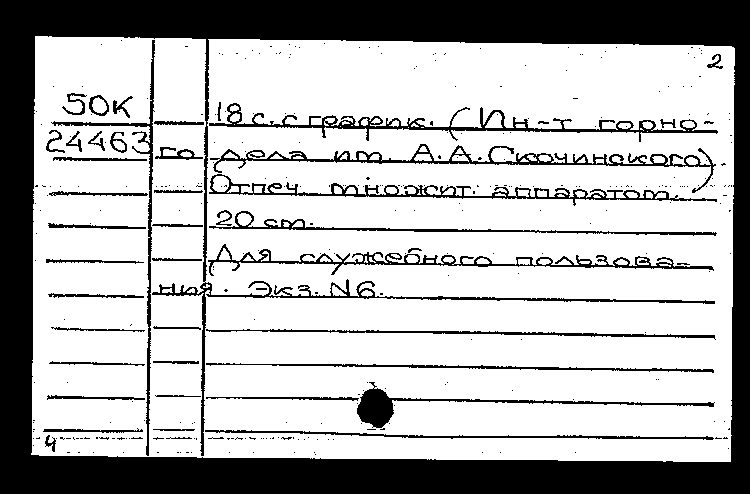 2
50К 18 с. с график. (Ин-т горно-
24463 го дела им. А.А. Скочинского).
Отпеч. множит. аппаратом.
20 см.
Для служебного пользова-
ния. Экз. N6.
4